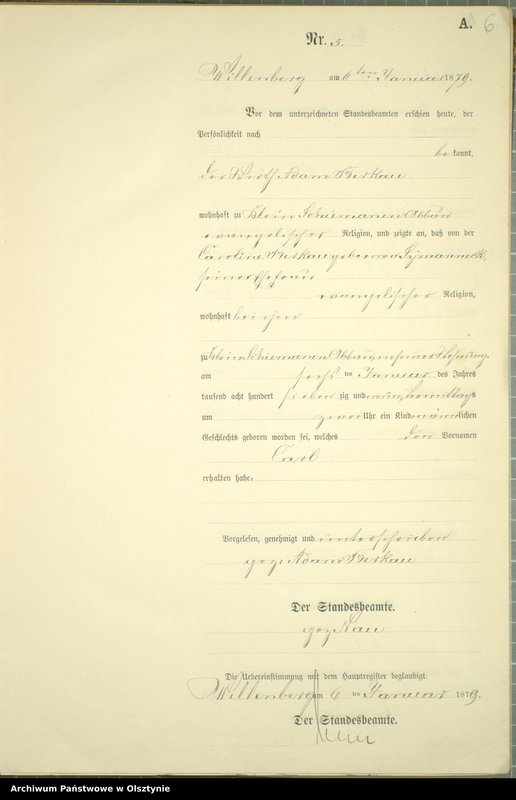 A. 6
Nr. 5.
Willenberg am 6ten Januar 1879.
Vor dem unterzeichneten Standesbeamten erschien heute, der
Persönlichkeit nach
bekannt,
der Wirth Adam
wohnhaft zu Klein Schiemanen Abbau
evangelischer Religion, und zeigte an, daß von der
Caroline geborenen
seiner Ehefrau
evangelischer Religion,
wohnhaft bei ihm
zu Klein Schiemanen Abbau, in seiner Behausung
am sechsten Januar des Jahres
tausend acht hundert siebenzig und neun, Vormittags
um zwei Uhr ein Kind männlichen
Geschlechts geboren worden sei, welches den Vornamen
Carl
erhalten habe.
Vorgelesen, genehmigt und unterschrieben
gez. Adam
Der Standesbeamte.
gez.
Die Uebereinstimmung mit dem Hauptregister beglaubigt.
Willenberg am 6ten Januar 1879.
Der Standesbeamte.
Archiwum Państwowe w Olsztynie